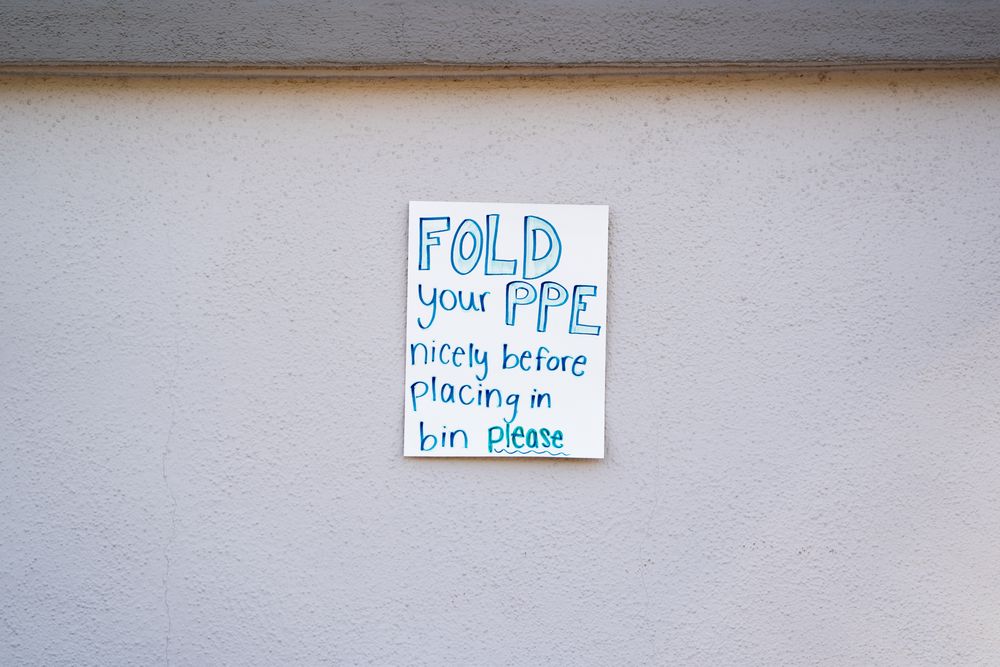 FOLD
your PPE
nicely before
placing in
bin please